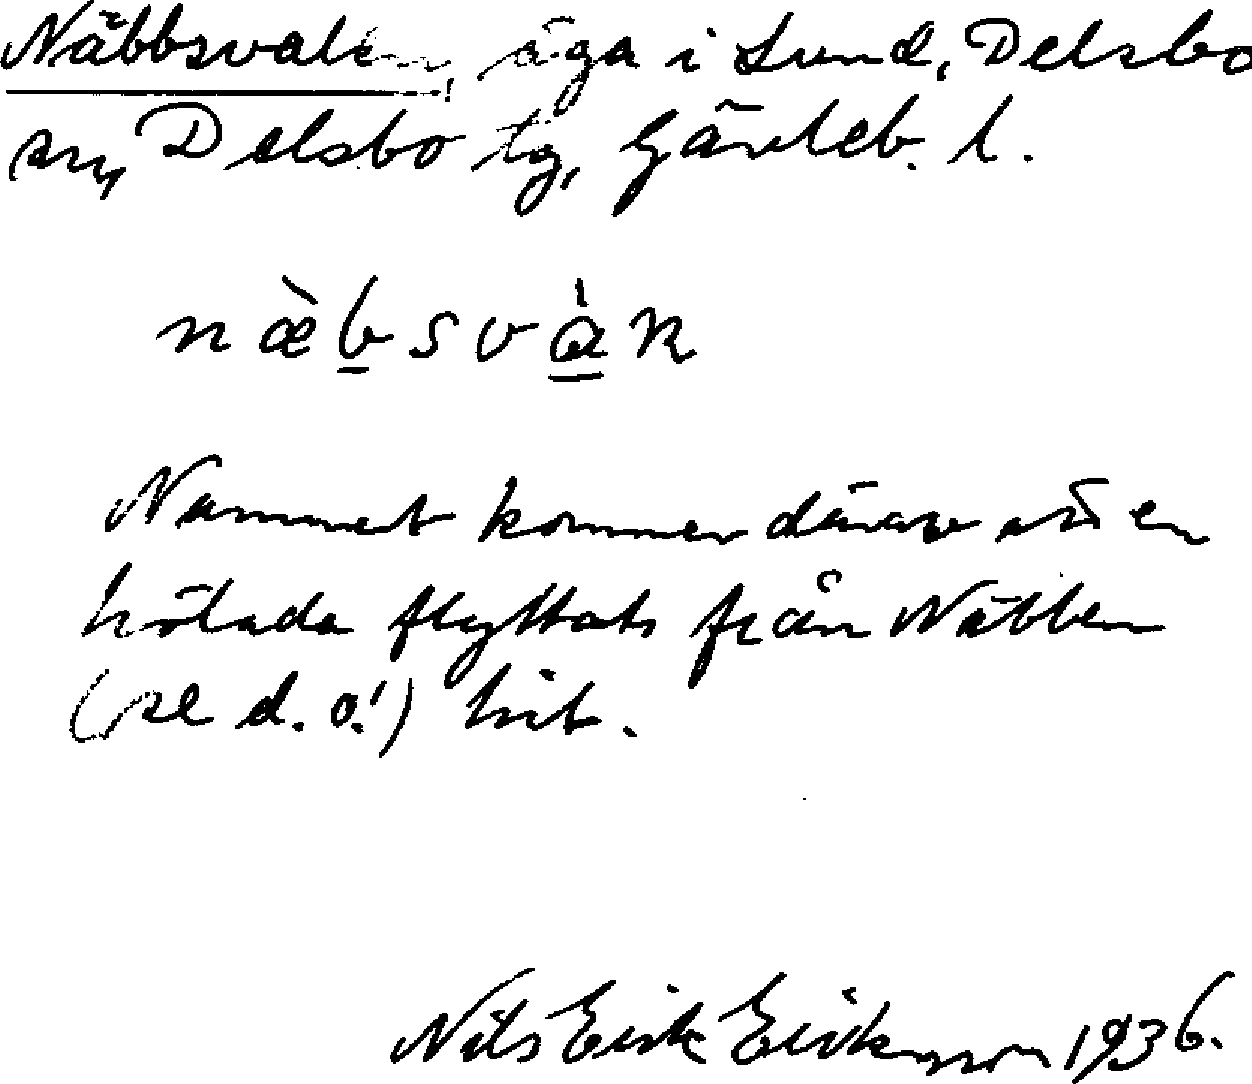 Näbbsvalen, äga i Lund, Delsbo
sn, Delsbo tg, Gävleb. l.
næ̀b̲svà̲n
Namnet kommer därav att en
hölada flyttats från Näbben
(se d. o.!) hit.
Nils Erik Eriksson 1936.